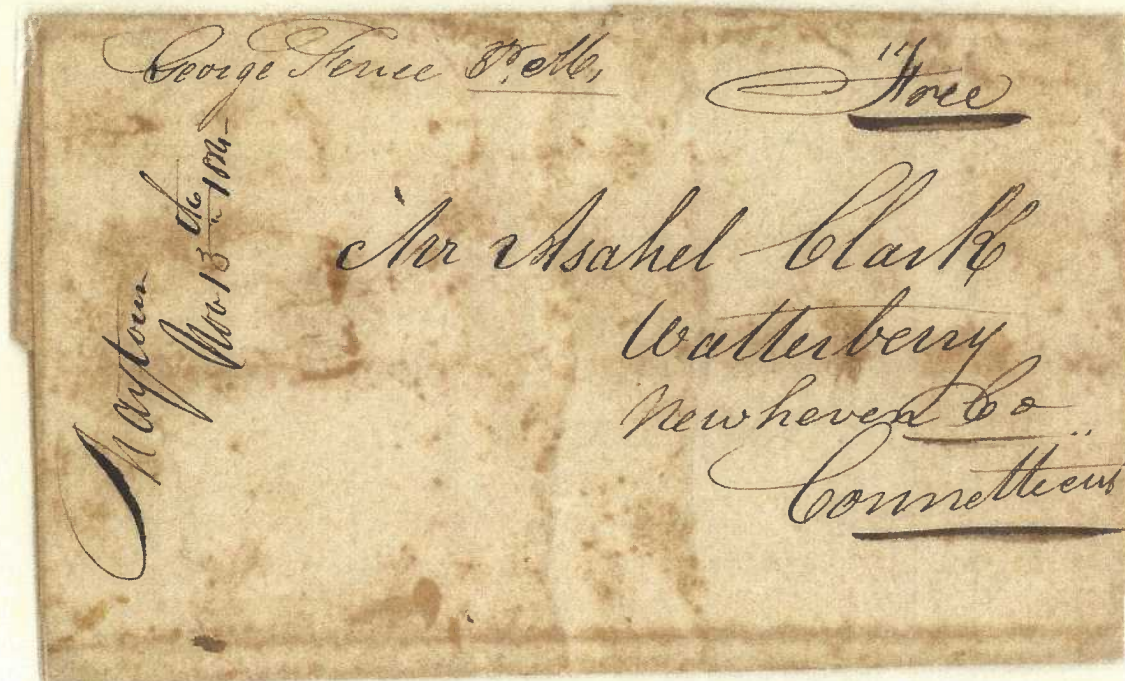 George Fence P. M,
Free
Maytown
Nov 13th
Mr Asahel Clark
Watterberry
Newheven Co
Connetticut